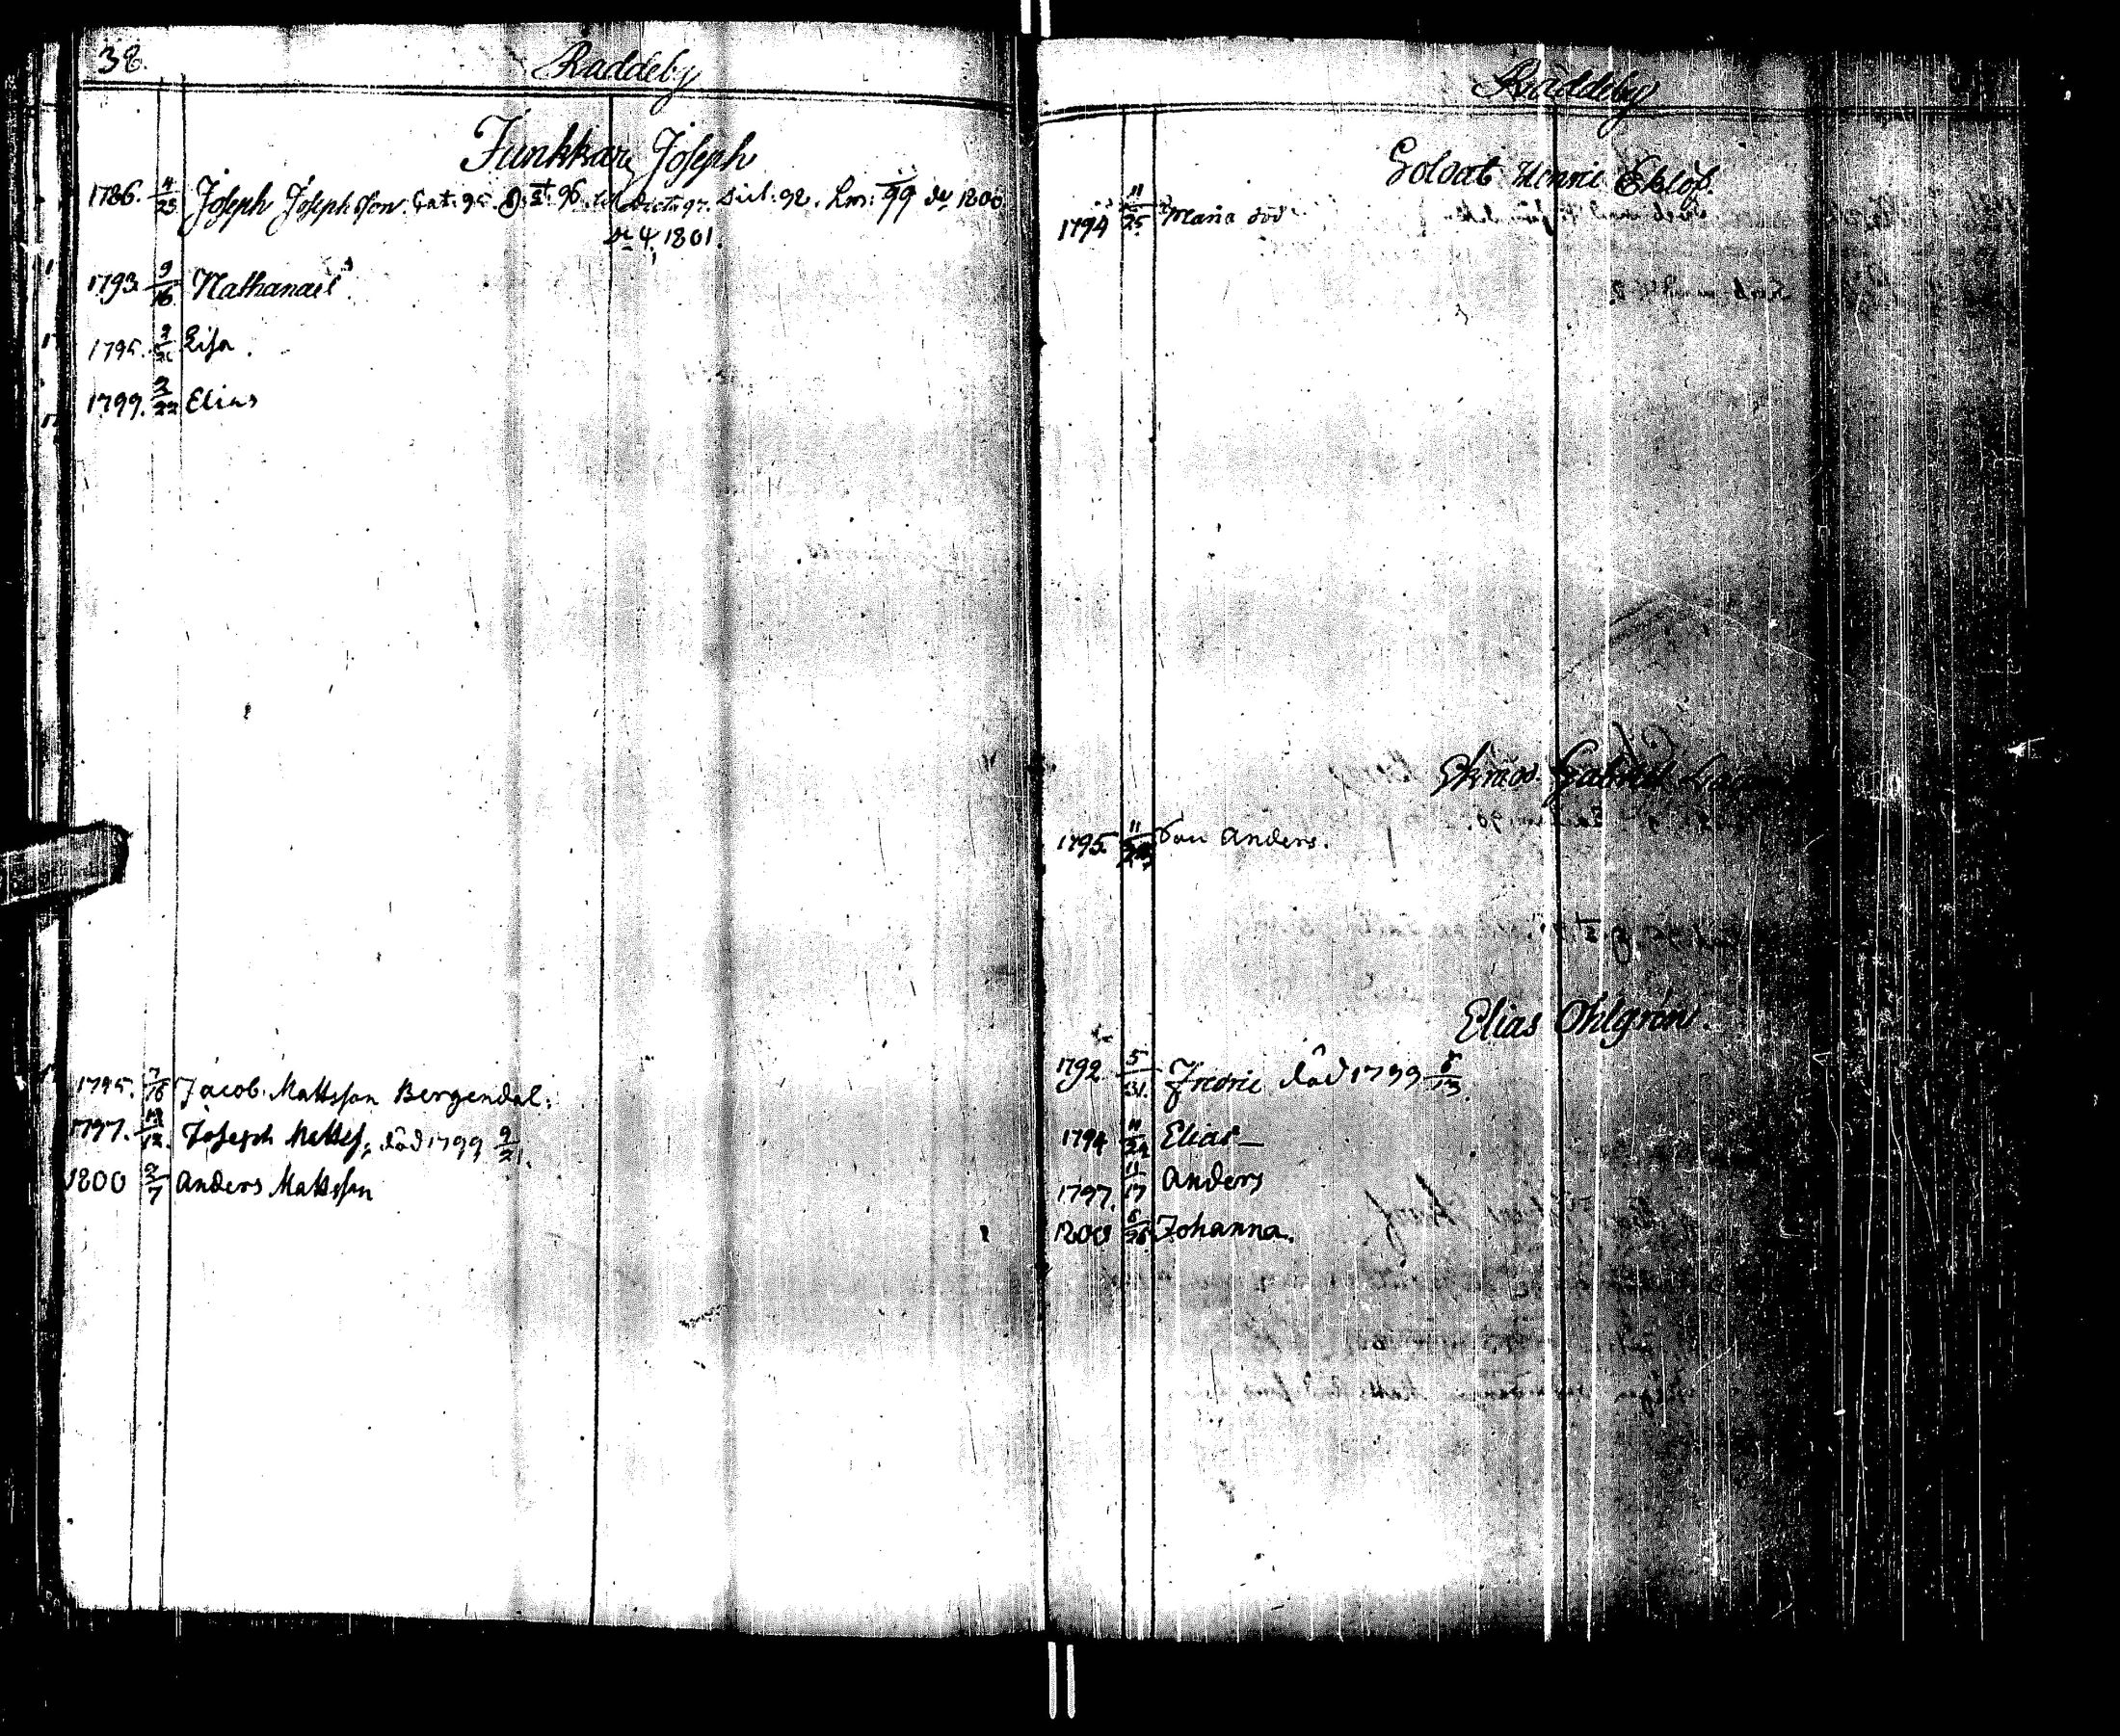 38.
Raddeby
Junkkari Joseph
1786. 4/23 Joseph Josephsson. Cat: 95. D. St. 96. Dict: 97. Dict: 98. Lm: 99 dn 1800
dn 4. 1801.
1793. 9/16 Nathanael
1795. 9/21 Lisa.
1799. 3/22 Elias
1795. 7/16 Jacob Mattsson Bergendal.
1797. 12/12. Joseph Mattss: död 1799 9/21.
1800 2/7 Anders Mattsson
Räddeby
Soldat Henric Eklöf.
1794 11/25 Maria död
Gabriel
1795. 11/29 Son Anders.
Elias Ohlgrén.
1792 5/31. Fredric död 1799 5/13.
1794 11/24 Elias
1797. 11/17 Anders
1800 6/26 Johanna.